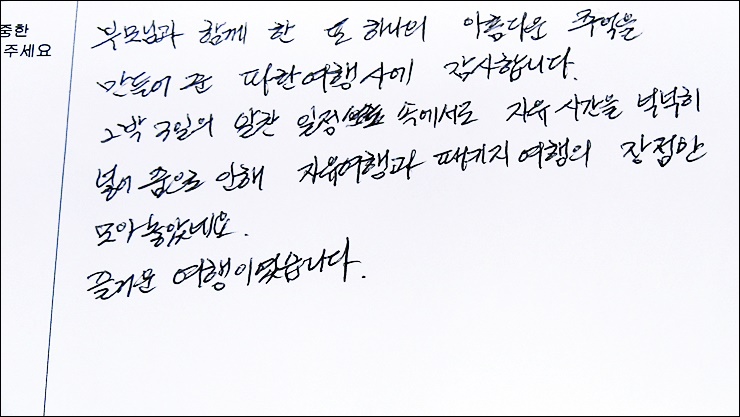 중한
주세요
부모님과 함께 한 또 하나의 아름다운 추억을
만들어 준 따한여행사에 감사합니다.
2박 3일의 알찬 일정 속에서도 자유 시간을 넉넉히
넣어 줌으로 인해 자유여행과 패키지 여행의 장점만
모아놓았네요.
즐거운 여행이였습니다.